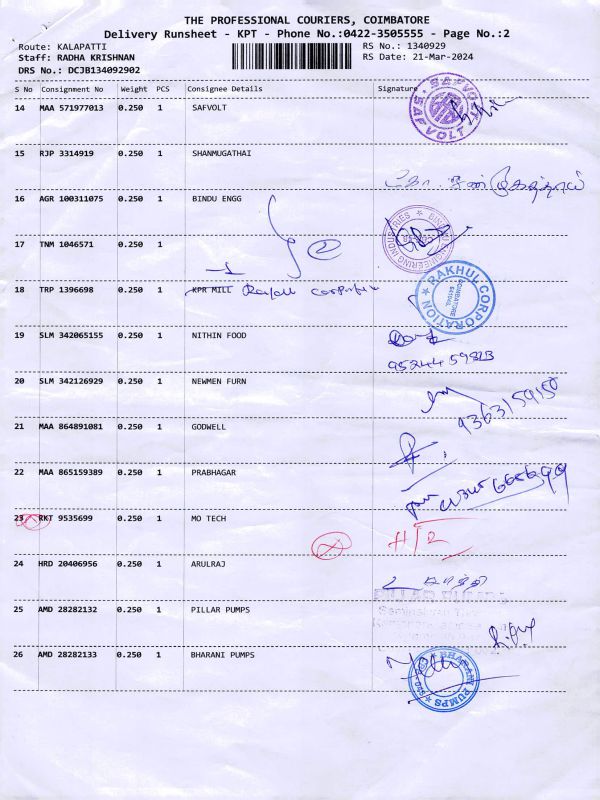 THE PROFESSIONAL COURIERS, COIMBATORE
Delivery Runsheet - KPT - Phone No.:0422-3505555 - Page No.:2
Route: KALAPATTI
RS No.: 1340929
Staff: RADHA KRISHNAN
RS Date: 21-Mar-2024
DRS No.: DCJB134092902
S No Consignment No Weight PCS Consignee Details Signature
14 MAA 571977013 0.250 1 SAFVOLT
SAFVOLT SAFVOLT
15 RJP 3314919 0.250 1 SHANMUGATHAI
16 AGR 100311075 0.250 1 BINDU ENGG
BINDU ENGINEERING INDUSTRIES
17 TNM 1046571 0.250 1
2
18 TRP 1396698 0.250 1 KPR MILL
RAKHUL CORPORATION
COIMBATORE
19 SLM 342065155 0.250 1 NITHIN FOOD
20 SLM 342126929 0.250 1 NEWMEN FURN
9363159150
21 MAA 864891081 0.250 1 GODWELL
22 MAA 865159389 0.250 1 PRABHAGAR
23 RKT 9535699 0.250 1 MO TECH
24 HRD 20406956 0.250 1 ARULRAJ
PILLAR PUMPS
25 AMD 28282132 0.250 1 PILLAR PUMPS
26 AMD 28282133 0.250 1 BHARANI PUMPS
BHARANI PUMPS